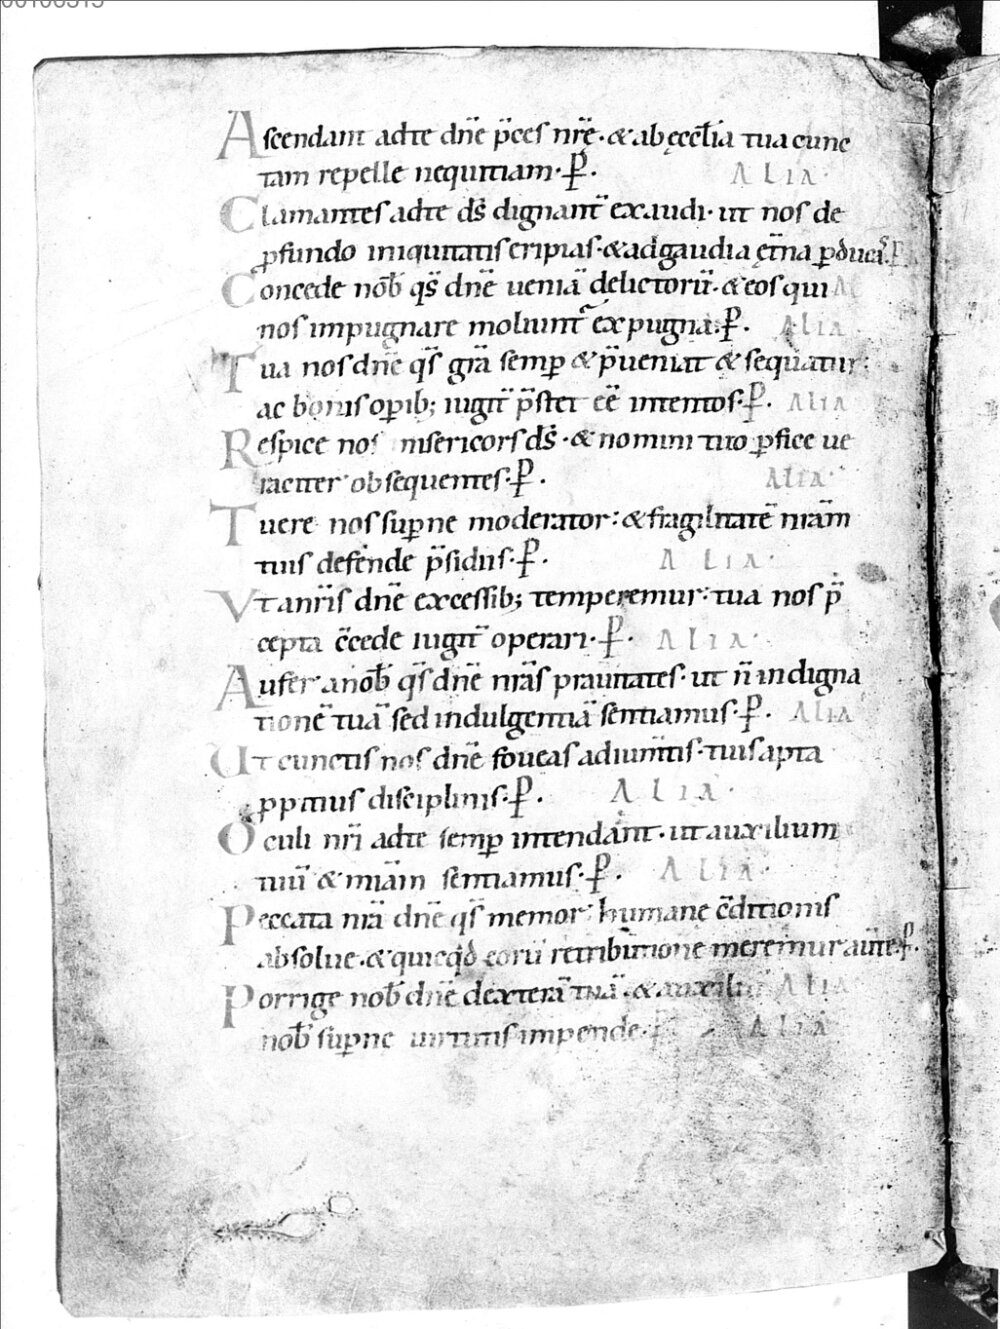 Ascendant adte dn̄e p̄ces nr̄ę · & ab ęccl̄ia tua cunc
tam repelle nequitiam · P̱ · ALIA ·
Clamantes adte dš dignant̄ exaudi · ut nos de
ꝓfundo iniquitatis eripias · & adgaudia ęt̄na ꝑducaš · P̱
Concede nob̄ qš dn̄e ueniā delictorū · & eos qui
nos impugnare moliunt̄ expugna · P̱ · ALIA
Tua nos dn̄e qš gr̄a semꝑ & p̄ueniat & sequatur ·
ac bonis oꝑib; iugit̄ p̄stet eē intentos · P̱ · ALIA
Respice nos misericors dš · & nomini tuo ꝑfice ue
raciter obsequentes · P̱ · ALIA ·
Tuere nos suꝑne moderator : & fragilitatē nr̄am
tuis defende p̄sidiis · P̱ · ALIA ·
Vt anr̄is dn̄e excessib; temperemur : tua nos p̄
cepta c̄cede iugit̄ operari · P̱ · ALIA ·
Aufer anob̄ qš dn̄e nr̄as prauitates · ut n̄ indigna
tionē tuā sed indulgentiā sentiamus · P̱ · ALIA
Ut cunctis nos dn̄e foueas adium̄tis · tuis apta
ꝓpitius disciplinis · P̱ · ALIA ·
Oculi nr̄i adte semꝑ intendant · ut auxilium
tuū & mīam sentiamus · P̱ · ALIA ·
Peccata nr̄a dn̄e qš memor humanę c̄ditionis
absolue · & quicq̄d eorū retributione meremur aūte · P̱ ·
Porrige nob̄ dn̄e dexterā tuā · & auxiliū ALIA
nob̄ suꝑne uirtutis impende · P̱ ALIA